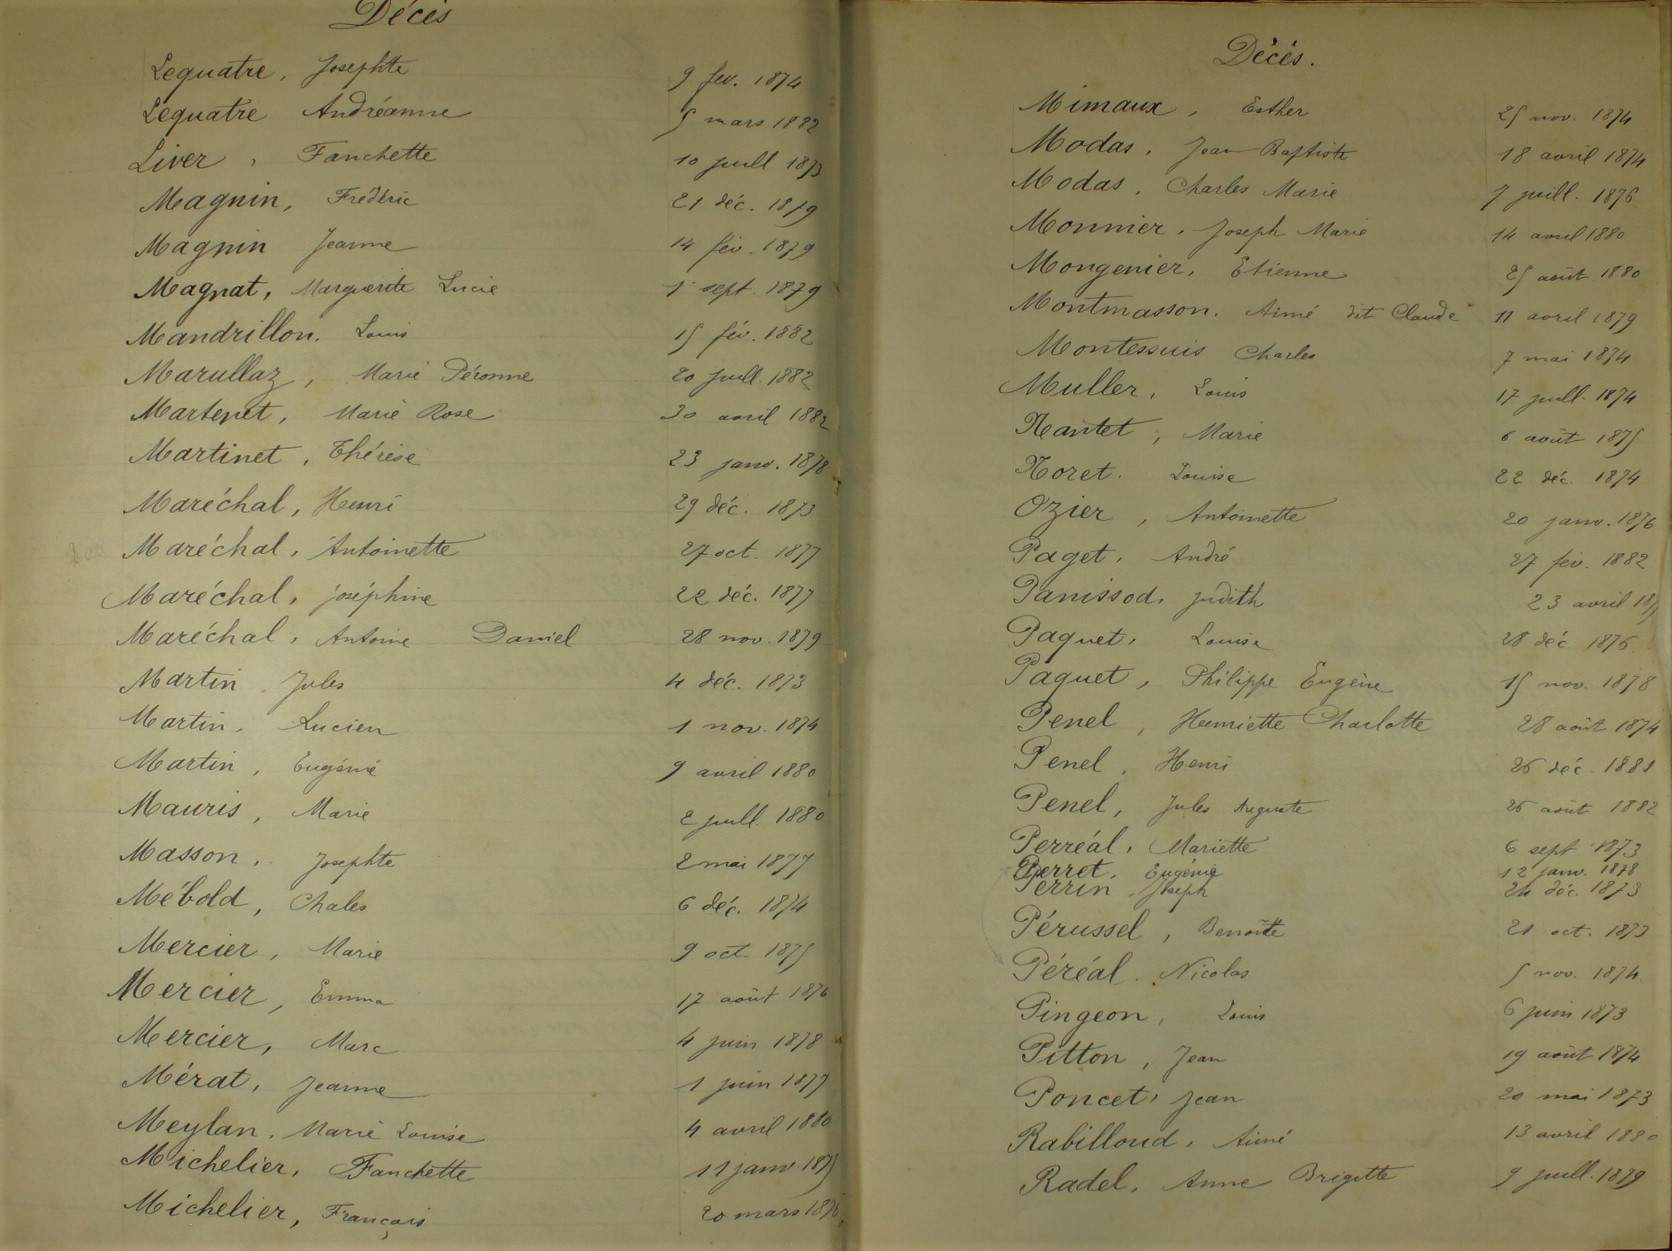 Décès
Lequatre, Josephte 9 fev. 1874
Lequatre Andréanne 5 mars 1882
Liver, Fanchette 10 juill 1873
Magnin, Frédéric 21 déc. 1879
Magnin Jeanne 14 fév. 1879
Magnat, Marguerite Lucie 1 sept 1879
Mandrillon. Louis 15 fév. 1882
Marullaz, Marie Péronne 20 juill. 1882
Martenet, Marie Rose 30 avril 1882
Martinet, Thérèse 23 janv. 1878
Maréchal, Henri 29 déc. 1873
Maréchal, Antoinette 27 oct. 1877
Maréchal, joséphine 22 déc. 1877
Maréchal, Antoine Daniel 28 nov. 1879
Martin Jules 4 déc. 1873
Martin, Lucien 1 nov. 1874
Martin, Eugénie 9 avril 1880
Mauris, Marie 2 juill. 1880
Masson, Josephte 2 mai 1877
Mébold, Chales 6 déc. 1874
Mercier, Marie 9 oct. 1875
Mercier, Emma 17 août 1876
Mercier, Marc 4 juin 1878
Mérat, Jeanne 1 juin 1877
Meylan, Marie Louise 4 avril 1880
Michelier, Fanchette 11 janv 1875
Michelier, Français 20 mars 1876
Décès.
Mimaux, Esther 25 nov. 1874
Modas, Jean Baptiste 18 avril 1874
Modas, Charles Marie 7 juill. 1876
Monnier, Joseph Marie 14 avril 1880
Mongenier, Etienne 25 août 1880
Montmasson, Aimé dit Claude 11 avril 1879
Montessuis Charles 7 mai 1874
Muller, Louis 17 juill. 1874
Nantet, Marie 6 août 1875
Noret. Louise 22 déc. 1874
Ozier, Antoinette 20 janv. 1876
Paget, André 27 fév. 1882
Panissod, judith 23 avril
Paquet, Louise 28 déc 1876
Paquet, Philippe Eugène 15 nov. 1878
Penel, Henriette Charlotte 28 août 1874
Penel, Henri 26 déc 1881
Penel, Jules Auguste 26 août 1882
Perréal, Mariette 6 sept 1873
Perret, Eugénie 12 janv. 1878
Perrin Joseph 24 déc. 1873
Pérussel, Benoîte 21 oct. 1873
Péréal. Nicolas 5 nov. 1874
Pingeon, Louis 6 juin 1873
Pitton, Jean 19 août 1874
Poncet, Jean 20 mai 1873
Rabilloud, Aimé 13 avril 1880
Radel, Anne Brigitte 9 juill. 1879